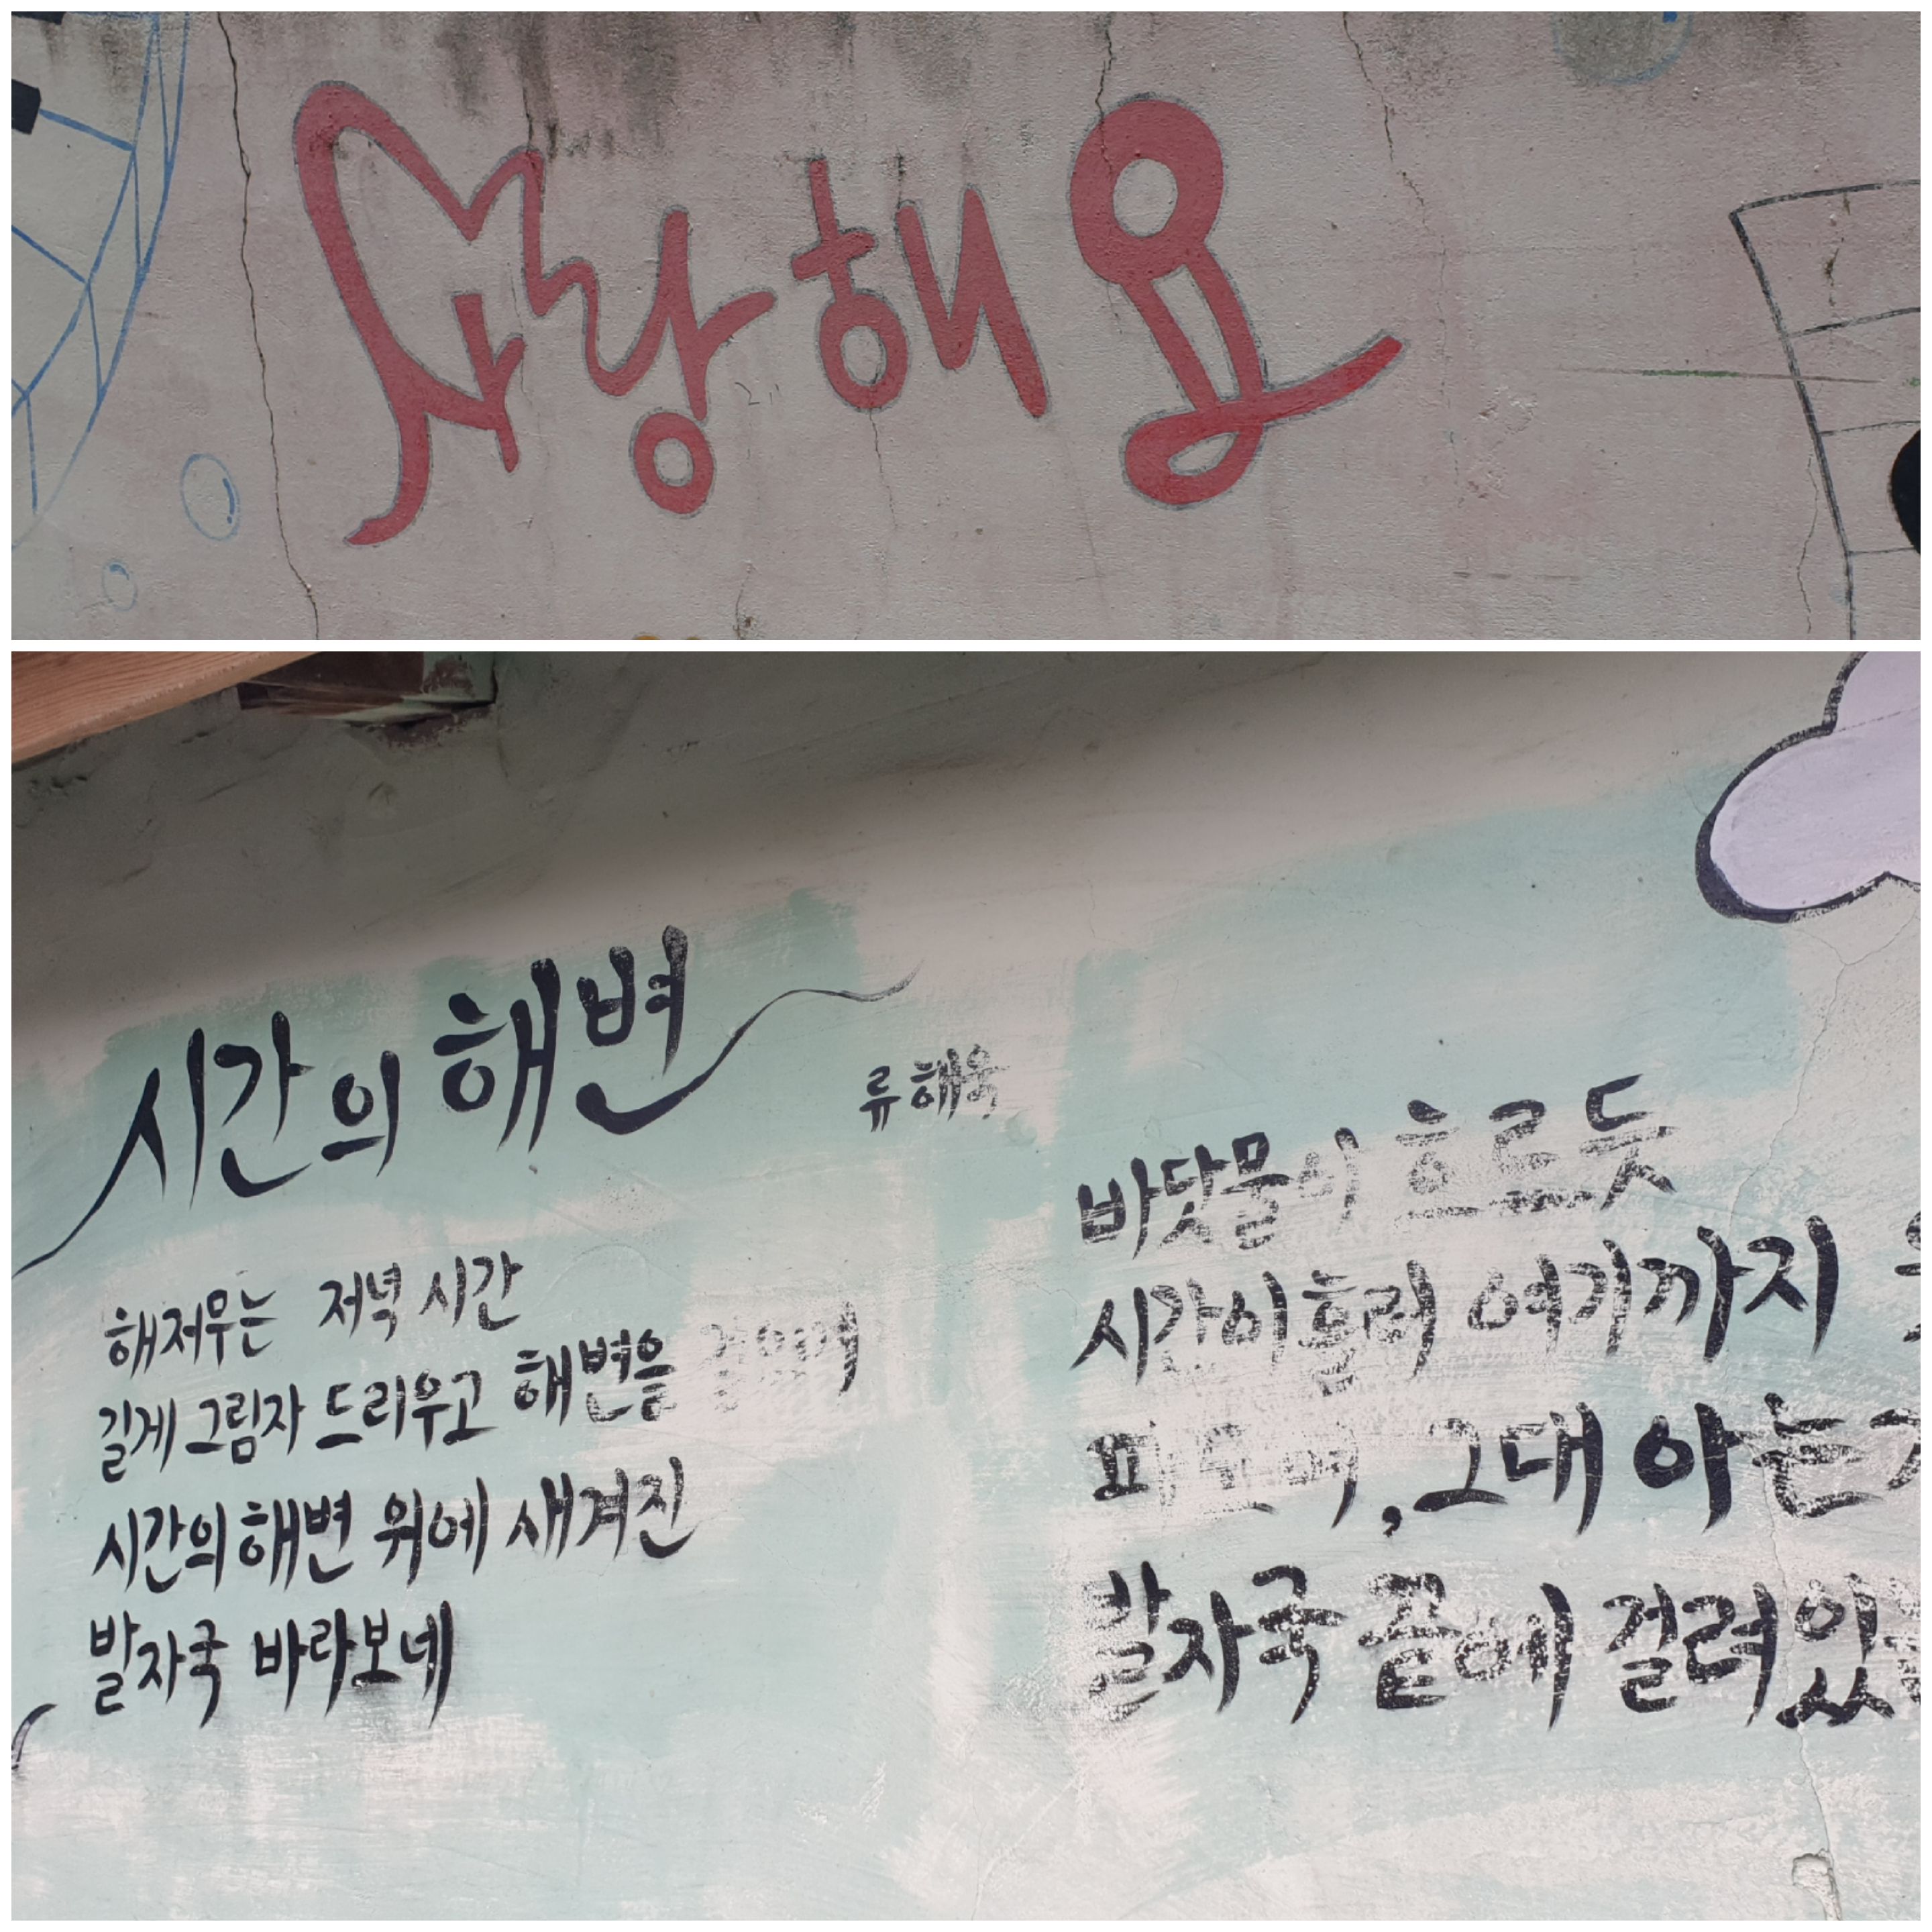 사랑해요
시간의 해변
류해욱
해저무는 저녁 시간
길게 그림자 드리우고 해변을
시간의 해변 위에 새겨진
발자국 바라보네
바닷물이 흐르듯
시간이 흘러 여기까지
그대 아는
발자국 끝에 걸려있